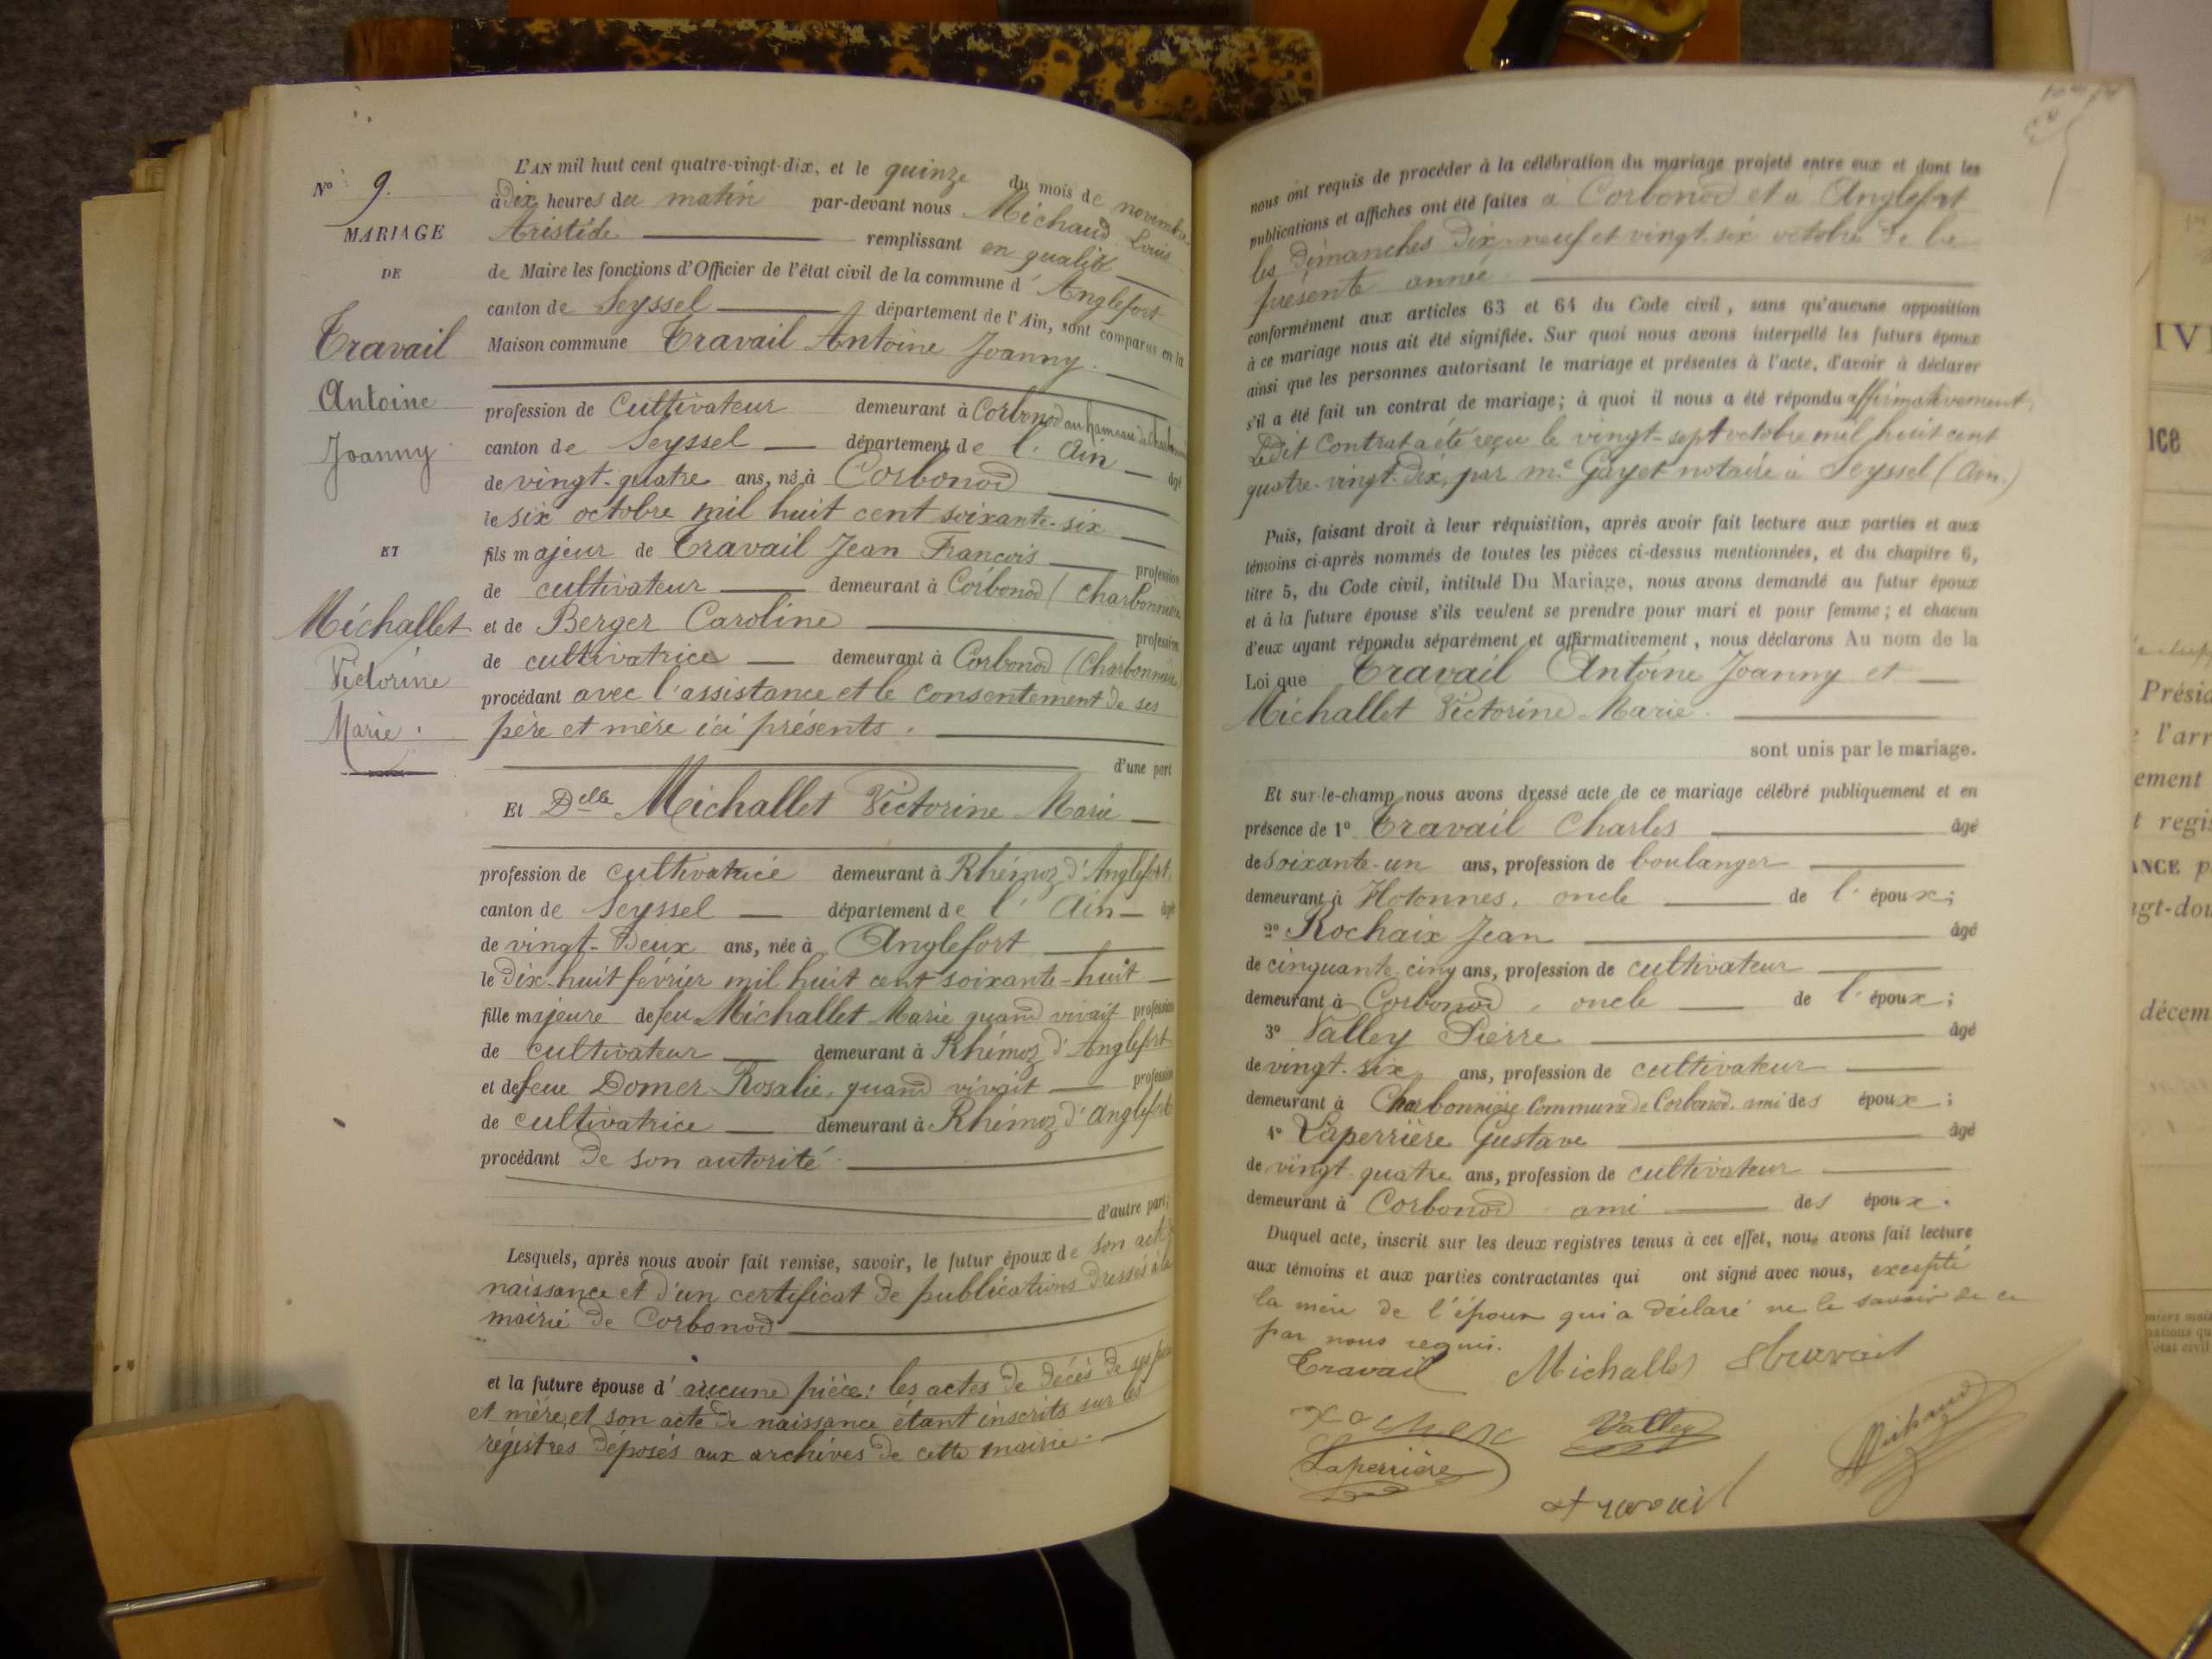 N° 9.
MARIAGE
DE
Travail
Antoine
Joanny
ET
Michallet
Victorine
Marie.
L'AN mil huit cent quatre-vingt-dix, et le quinze du mois de novembre
à Dix heures du matin par-devant nous Michaud Louis
Aristide remplissant en qualité
de Maire les fonctions d'Officier de l'état civil de la commune d'Anglefort
canton de Seyssel département de l'Ain, sont comparus en la
Maison commune Travail Antoine Joanny.
profession de Cultivateur demeurant à Corbonod au hameau de
canton de Seyssel département de l'Ain âgé
de vingt-quatre ans, né à Corbonod
le six octobre mil huit cent soixante-six
fils majeur de Travail Jean François profession
de cultivateur demeurant à Corbonod (Charbonnière
et de Berger Caroline profession
de cultivatrice demeurant à Corbonod (Charbonnière)
procédant avec l'assistance et le consentement de ses
père et mère ici présents.
d'une part
Et Delle Michallet Victorine Marie
profession de cultivatrice demeurant à Rhémoz d'Anglefort,
canton de Seyssel département de l'Ain âgée
de vingt-Deux ans, née à Anglefort
le Dix-huit février mil huit cent soixante-huit
fille majeure de feu Michallet Marie quand vivait profession
de cultivateur demeurant à Rhémoz d'Anglefort
et de feue Domer Rosalie, quand vivait profession
de cultivatrice demeurant à Rhémoz d'Anglefort
procédant De son autorité
d'autre part;
Lesquels, après nous avoir fait remise, savoir, le futur époux de son acte
naissance et d'un certificat de publications dressés à la
mairie de Corbonod
et la future épouse d'aucune pièce: les actes de décès de ses père
et mère, et son acte de naissance étant inscrits sur les
régistres déposés aux archives de cette mairie.
nous ont requis de procéder à la célébration du mariage projeté entre eux et dont les
publications et affiches ont été faites à Corbonod et à Anglefort
les dimanches Dix-neuf et vingt-six octobre de la
présente année.
conformément aux articles 63 et 64 du Code civil, sans qu'aucune opposition
à ce mariage nous ait été signifiée. Sur quoi nous avons interpellé les futurs époux
ainsi que les personnes autorisant le mariage et présentes à l'acte, d'avoir à déclarer
s'il a été fait un contrat de mariage; à quoi il nous a été répondu affirmativement,
Ledit Contrat a été reçu le vingt-sept octobre mil huit cent
quatre-vingt-Dix, par me Gayet notaire à Seyssel (Ain.)
Puis, faisant droit à leur réquisition, après avoir fait lecture aux parties et aux
témoins ci-après nommés de toutes les pièces ci-dessus mentionnées, et du chapitre 6,
titre 5, du Code civil, intitulé Du Mariage, nous avons demandé au futur époux
et à la future épouse s'ils veulent se prendre pour mari et pour femme; et chacun
d'eux ayant répondu séparément et affirmativement, nous déclarons Au nom de la
Loi que Travail Antoine Joanny et
Michallet Victorine Marie.
sont unis par le mariage.
Et sur-le-champ nous avons dressé acte de ce mariage célébré publiquement et en
présence de 1° Travail Charles âgé
de soixante-un ans, profession de boulanger
demeurant à Hotonnes, oncle de l'époux;
2° Rochaix Jean âgé
de cinquante cinq ans, profession de cultivateur
demeurant à Corbonod, oncle de l'époux;
3° Valley Pierre âgé
de vingt-six ans, profession de cultivateur
demeurant à Charbonnière Commune de Corbonod. ami des époux;
4° Laperrière Gustave âgé
de vingt-quatre ans, profession de cultivateur
demeurant à Corbonod ami des époux.
Duquel acte, inscrit sur les deux registres tenus à cet effet, nous avons fait lecture
aux témoins et aux parties contractantes qui ont signé avec nous, excepté
la mère de l'époux qui a déclaré ne le savoir de ce
par nous requis.
Travail Michallet
Valley
Laperrière
Michaud